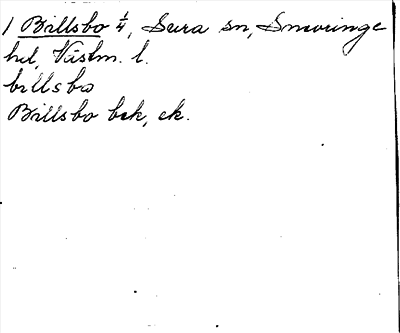 1 Billsbo 1/4, Sura sn, Snevringe
hd, Västm. l.
billsbo
Billsbo bsk, ek.